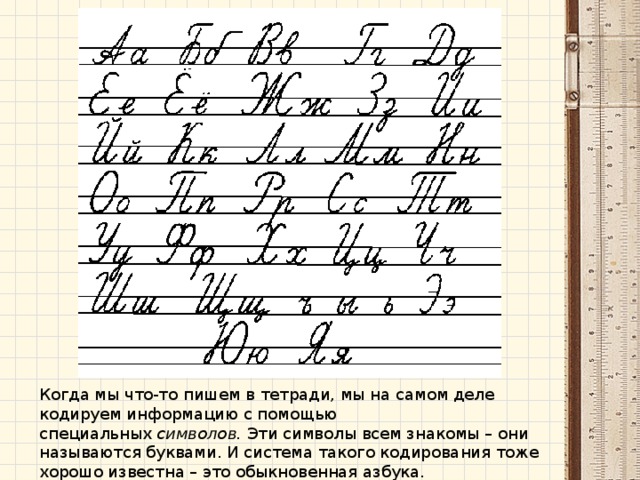 Аа Бб Вв Гг Дд
Ее Ёё Жж Зз Ии
Йй Кк Лл Мм Нн
Оо Пп Рр Сс Тт
Уу Фф Хх Цц Чч
Шш Щщ ъ ы ь Ээ
Юю Яя
Когда мы что-то пишем в тетради, мы на самом деле
кодируем информацию с помощью
специальных символов. Эти символы всем знакомы – они
называются буквами. И система такого кодирования тоже
хорошо известна – это обыкновенная азбука.